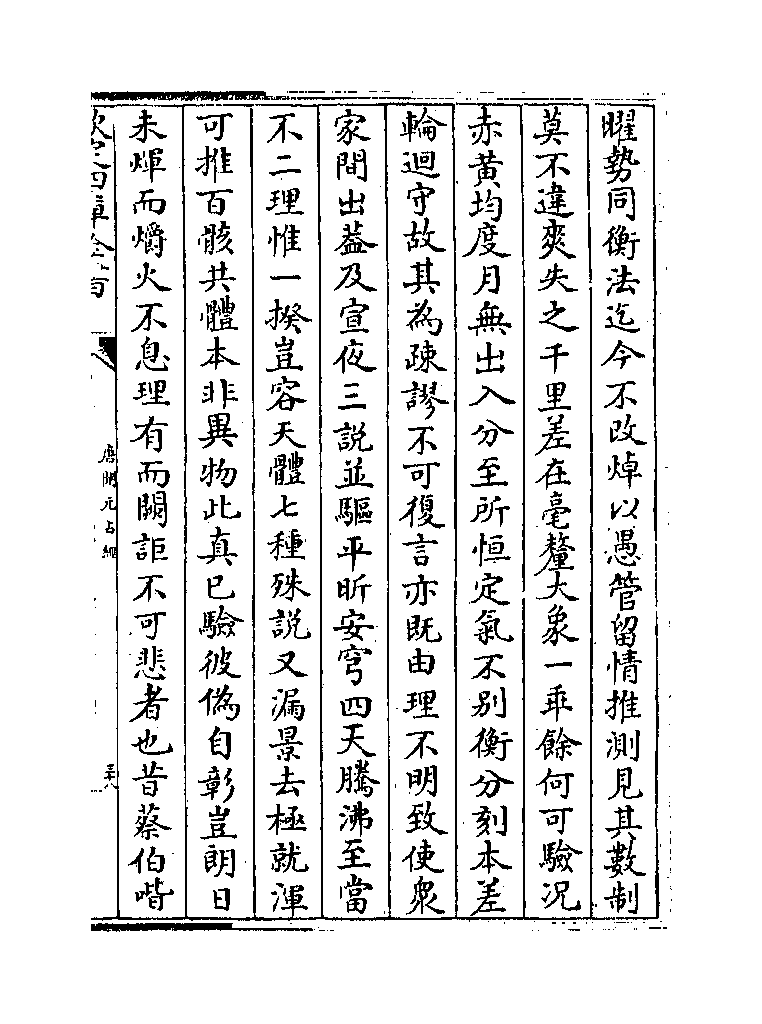 曜勢同衡法迄今不改焯以愚管留情推測見其數制
莫不違爽失之千里差在毫釐大象一乖餘何可驗况
赤黄均度月無出入分至所恒定氣不别衡分刻本差
輪迴守故其為疎謬不可復言亦既由理不明致使衆
家間出葢及宣夜三説並驅平昕安穹四天騰沸至當
不二理惟一揆豈容天體七種殊説又漏景去極就渾
可推百骸共體本非異物此真已驗彼偽自彰豈朗日
未煇而爝火不息理有而闕詎不可悲者也昔蔡伯喈
欽定四庫全書
唐開元占經
三十八